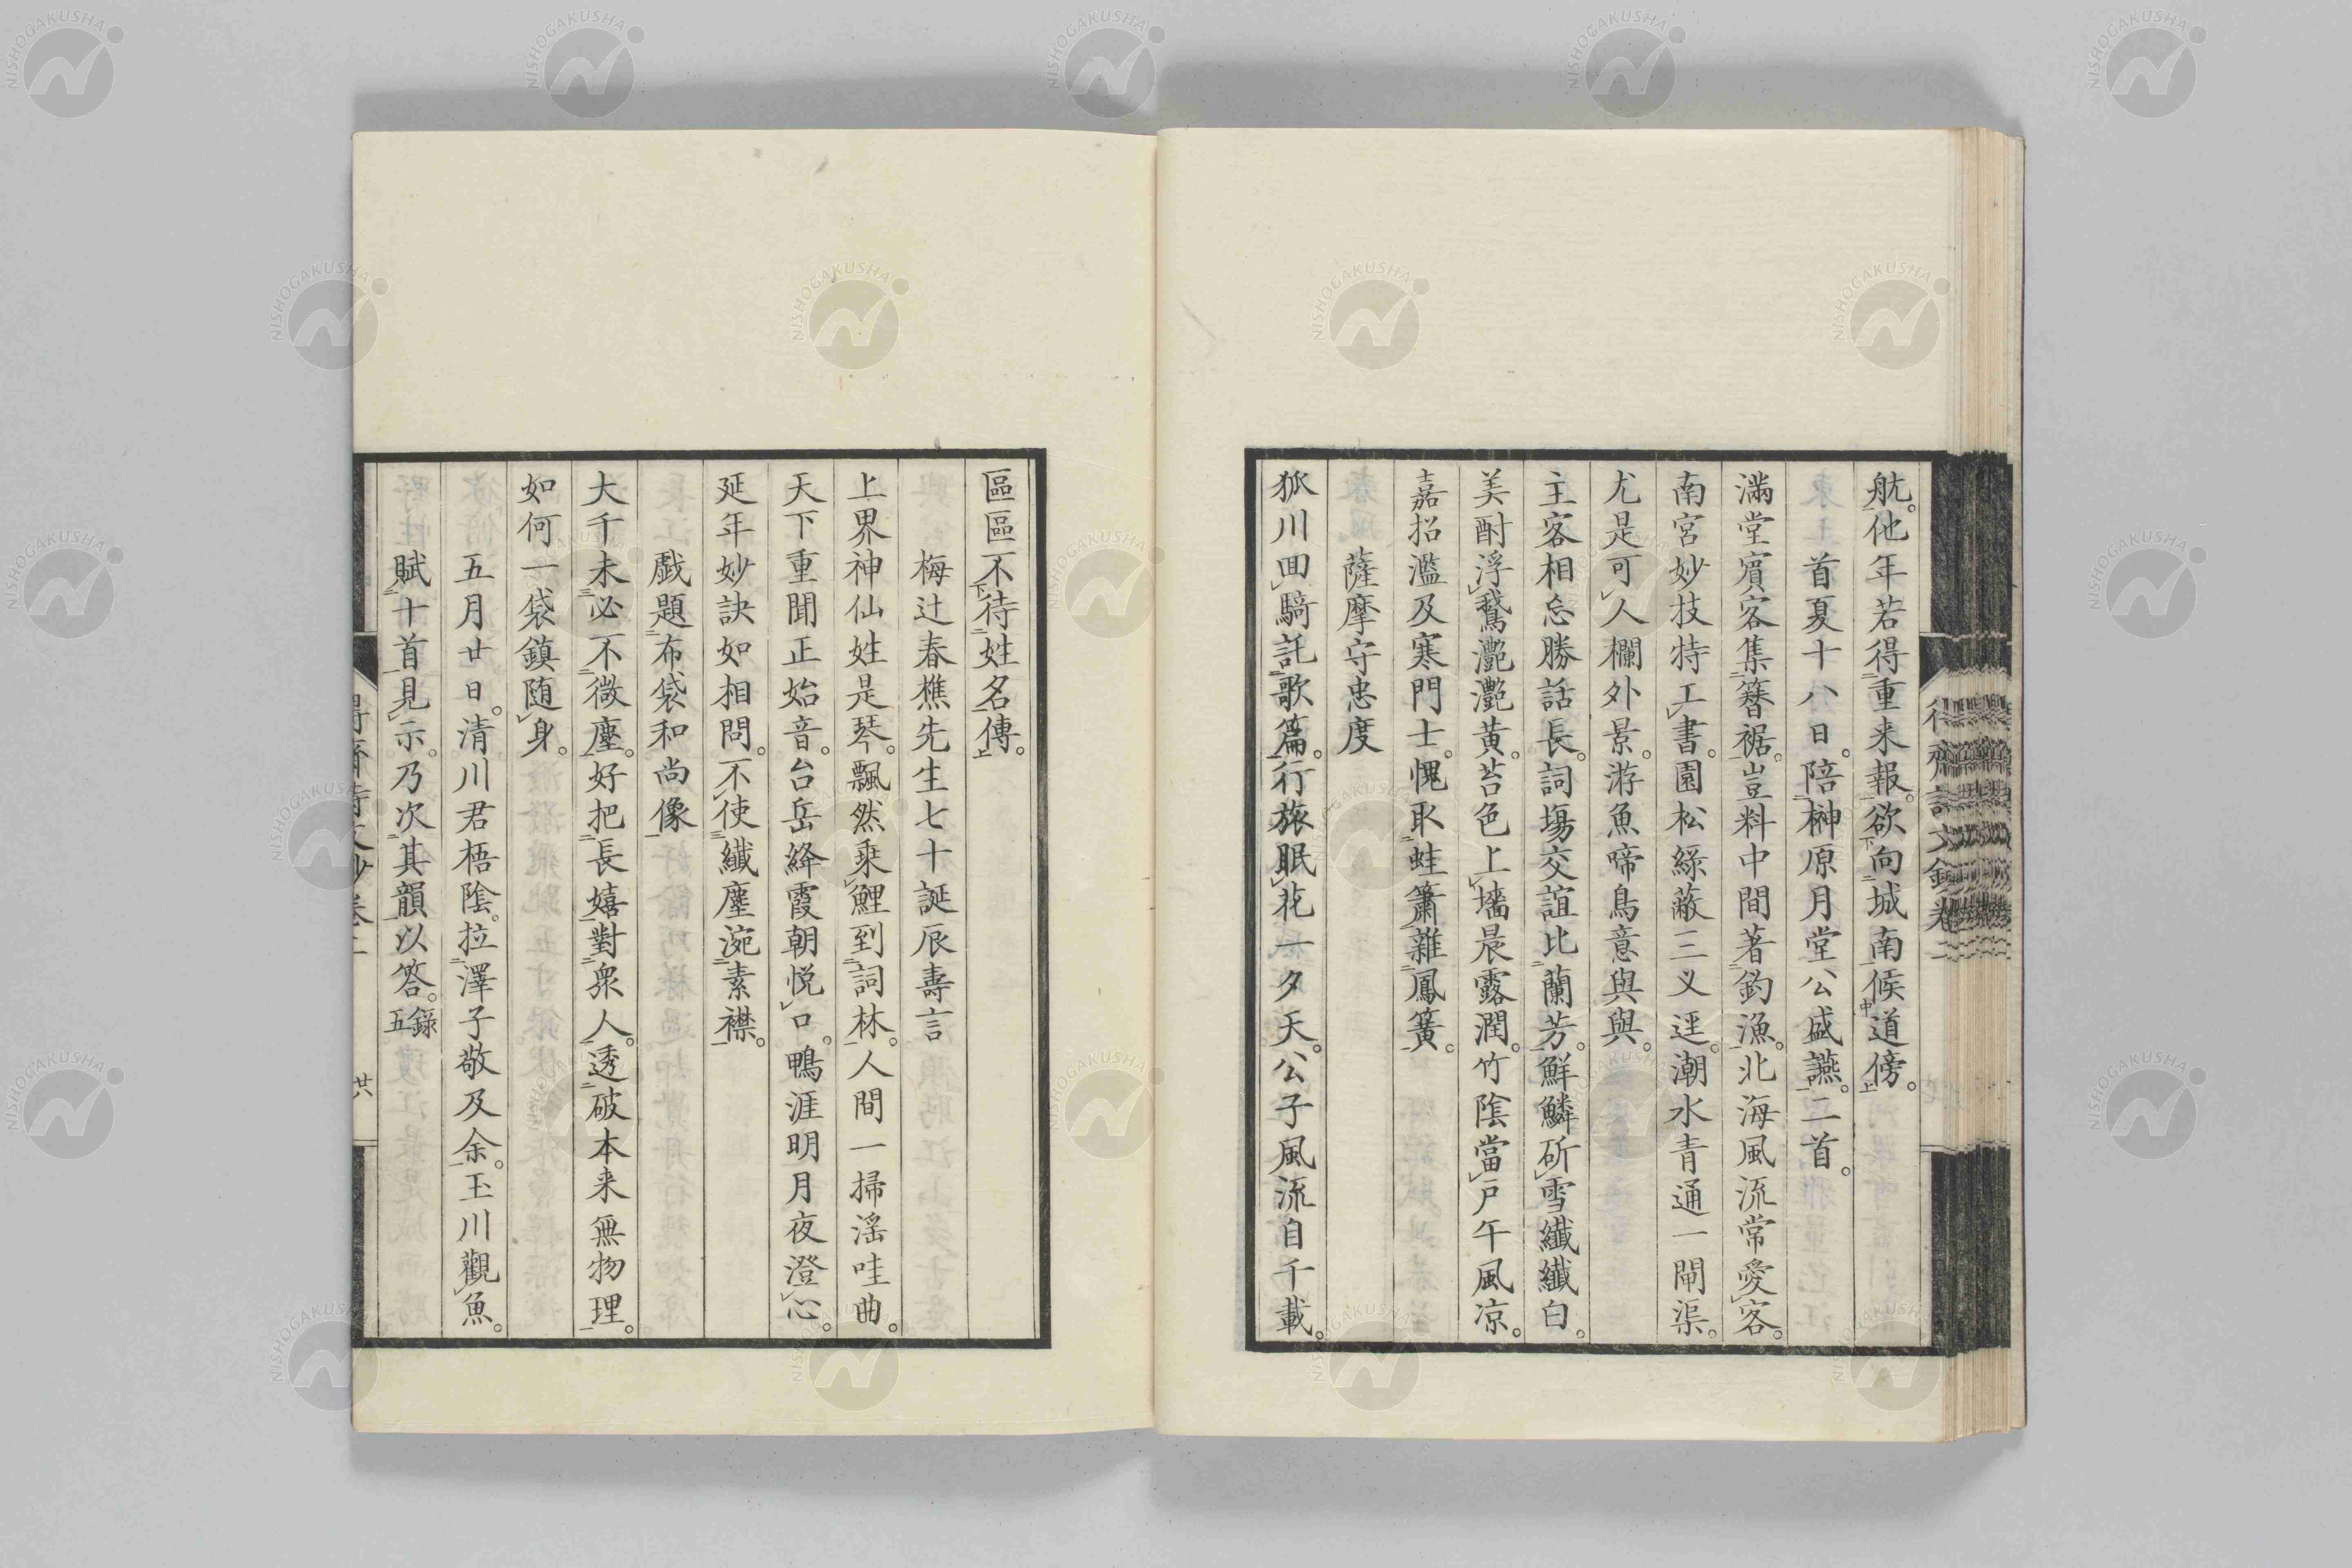 航。他年若得重来報。欲向城南候道傍。
首夏十八日。陪榊原月堂公盛讌。二首。
滿堂賓客集簪裾。豈料中間著釣漁。北海風流常愛客。
南宮妙技特工書。園松綠蔽三义逕。潮水青通一閘渠。
尤是可人欄外景。游魚啼鳥意與與。
主客相忘勝話長。詞場交誼比蘭芳。鮮鱗斫雪纖纖白。
美酎浮鵞灔灔黃。苔色上墻晨露潤。竹陰當戶午風凉。
嘉招濫及寒門士。愧取蛙簫雜鳳簧。
薩摩守忠度
狐川回騎託歌篇。行旅眠花一夕天。公子風流自千載。
區區不待姓名傳。
梅辻春樵先生七十誕辰壽言
上界神仙姓是琴。飄然乗鯉到詞林。人間一掃滛哇曲。
天下重聞正始音。台岳絳霞朝悅口。鴨涯明月夜澄心。
延年妙訣如相問。不使纖塵涴素襟。
戲題布袋和尚像
大千未必不微塵。好把長嬉對衆人。透破本来無物理。
如何一袋鎮随身。
五月廿日。清川君梧陰。拉澤子敬及余。玉川觀魚。
賦十首見示。乃次其韻以答。錄五
廿六